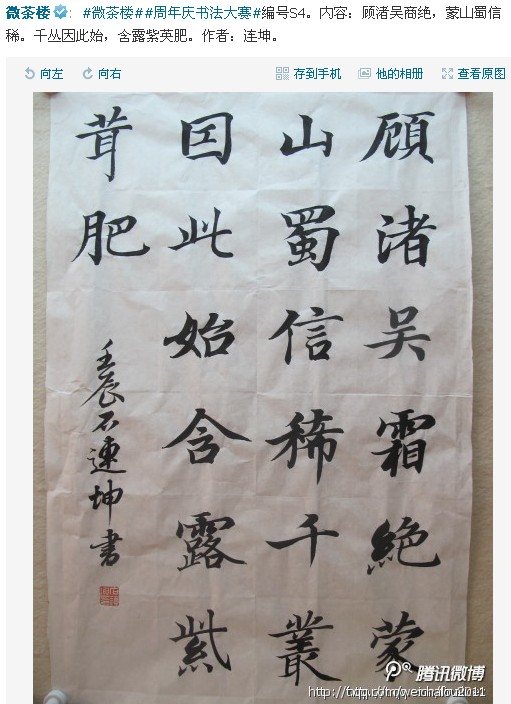 微茶楼：#微茶楼##周年庆书法大赛#编号S4。内容：顾渚吴商绝，蒙山蜀信
稀。千丛因此始，含露紫英肥。作者：连坤。
向左 向右 存到手机 他的相册 查看原图
顾渚吴霜絶蒙
山蜀信稀千叢
囙此始含露紫
茸肥
壬辰石連坤書
腾讯微博